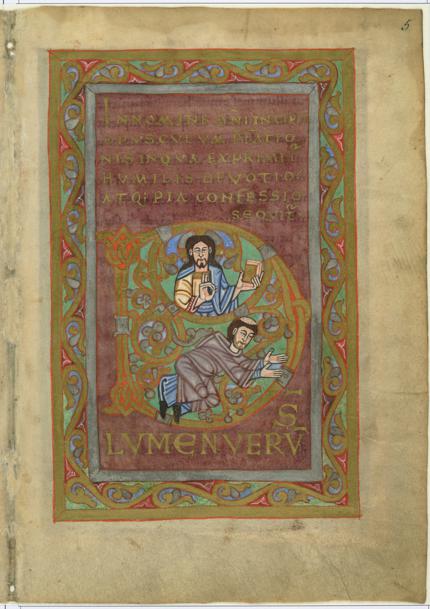 5
IN NOMINE DNI INCIP
OPVSCVLVM ORATIO
NIS IN QVA EXPRIMIT
HVMILIS DEVOTIO
ATQ; PIA CONFESSIO
D
S
LVMEN VERV